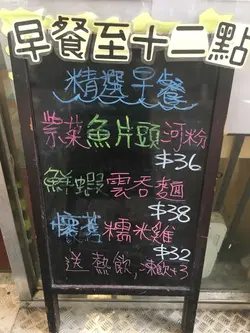 早餐至十二點
精選早餐
紫菜魚片頭河粉
$36
鮮蝦雲吞麵
$38
懷舊糯米雞
$32
送熱飲,凍飲+3